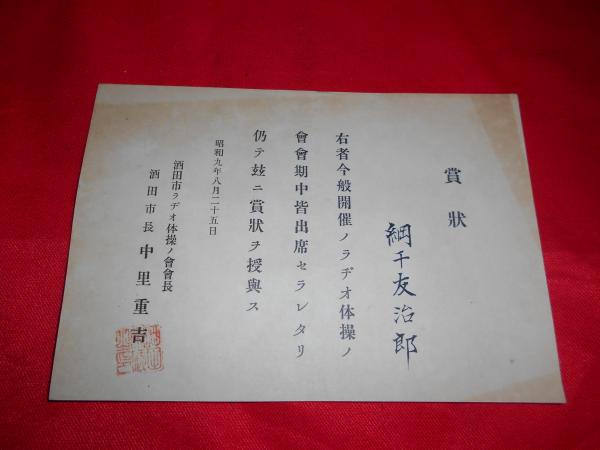 賞狀
綱干友治郎
右者今般開催ノラヂオ体操ノ
會會期中皆出席セラレタリ
仍テ玆ニ賞狀ヲ授與ス
昭和九年八月二十五日
酒田市ラヂオ体操ノ會會長
酒田市長 中里重吉